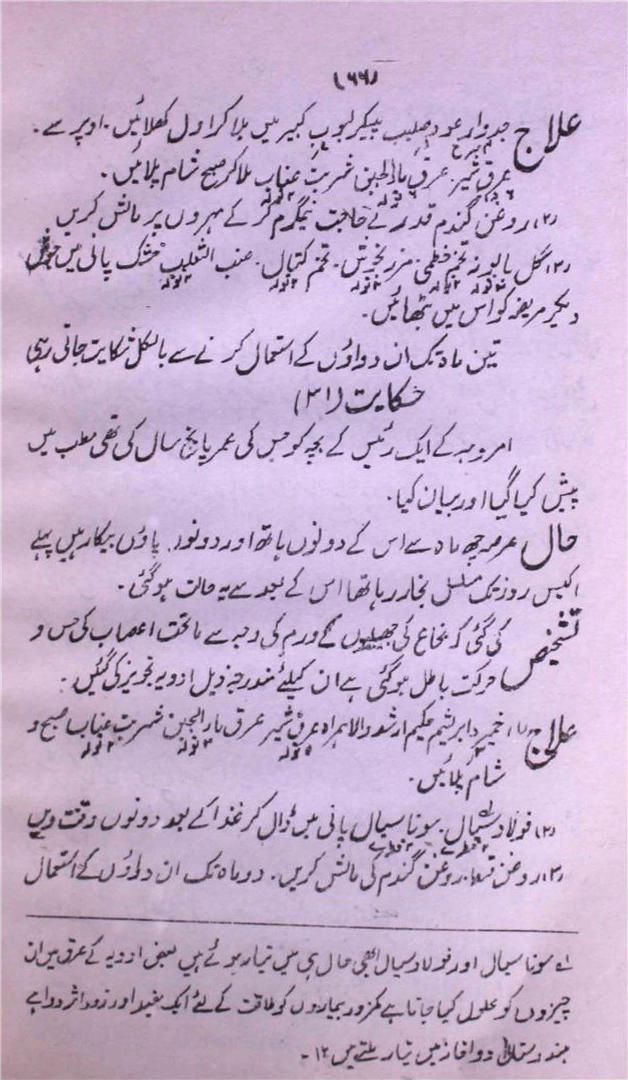 (۶۶)
علاج جدوار عود صلیب پیکر لبوب کبیر میں ملا کر اول کھلائیں۔ اوپر سے۔
عرق شیر۔ عرق ماء الجبن شربت عناب ملا کر صبح شام پلائیں۔
(۲) روغن گندم قدرے حاجت نیمگرم کر کے مہروں پر مالش کریں
(۳) گل بابونہ تخم خطمی۔ مرزنجوش۔ تخم کتاں۔ عنب الثعلب خشک پانی میں جوش
دیکر مریضہ کو اس میں بٹھائیں۔
تین ماہ تک ان دواؤں کے استعمال کرنے سے بالکل شکایت جاتی رہی
حکایت (۳۱)
امروہہ کے ایک رئیس کے بچہ کو جس کی عمر پانچ سال کی تھی مطب میں
پیش کیا گیا اور بیان کیا۔
حال عرصہ چھ ماہ سے اس کے دونوں ہاتھ اور دونوں پاؤں بیکار ہیں پہلے
اکیس روز تک مسلسل بخار رہا تھا اس کے بعد سے یہ حالت ہو گئی۔
تشخیص کی گئی کہ نخاع کی جھلیوں کے ورم کی وجہ سے ماتحت اعصاب کی حس و
حرکت باطل ہو گئی ہے ان کیلئے مندرجہ ذیل ادویہ تجویز کی گئیں۔
علاج (۱) خمیرہ ابریشم حکیم ارشد والا ہمراہ عرق شیر عرق ماء الجبن شربت عناب صبح و
شام پلائیں۔
(۲) فولاد سیال۔ سونا سیال پانی میں ڈال کر غذا کے بعد دونوں وقت دیں
(۳) روغن قسط، روغن گندم کی مالش کریں۔ دو ماہ تک ان دواؤں کے استعمال
لے سونا سیال اور فولاد سیال ابھی حال ہی میں تیار ہوئے ہیں بعض ادویہ کے عرق میں ان
چیزوں کو محلول کیا جاتا ہے کمزور بیماروں کو طاقت کے لئے ایک مفید اور زود اثر دوا ہے
ہندوستانی دواخانہ میں تیار ملتے ہیں ۱۲۔